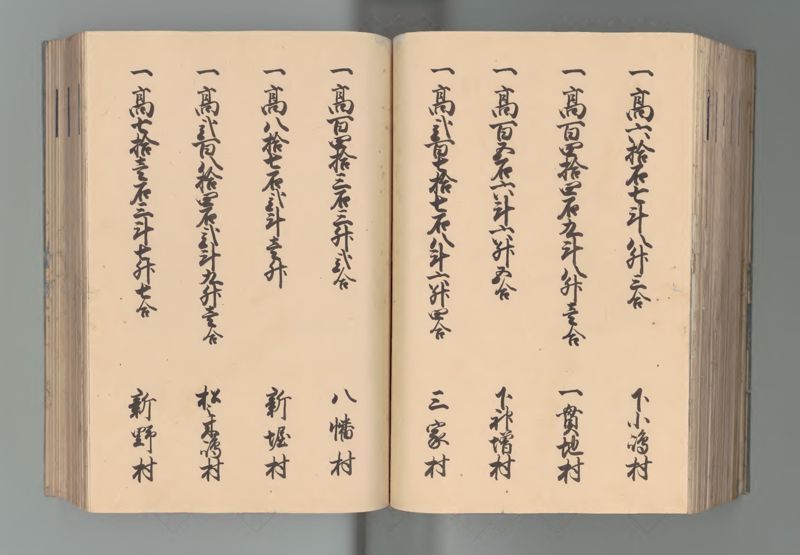 一高六拾石七斗八升三合 下小嶋村
一高百四拾四石九斗八升壱合 一貫地村
一高百五石六斗六升五合 下神増村
一高弐百七拾七石八斗六升四合 三家村
一高百四拾三石三升弐合 八幡村
一高八拾七石弐斗壱升 新堀村
一高弐百八拾四石弐斗九升壱合 松本嶋村
一高七拾壱石三斗七升七合 新野村